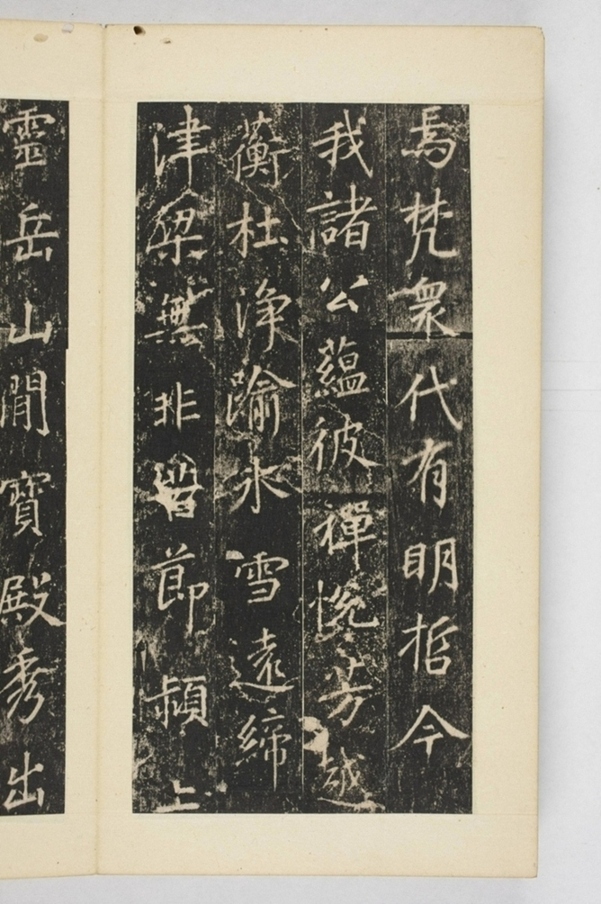 焉梵衆代有明哲今
我諸公蘊彼禪悅芳越
蘅杜淨踰氷雪遠締
津梁無非節上
靈岳山間寶殿秀出